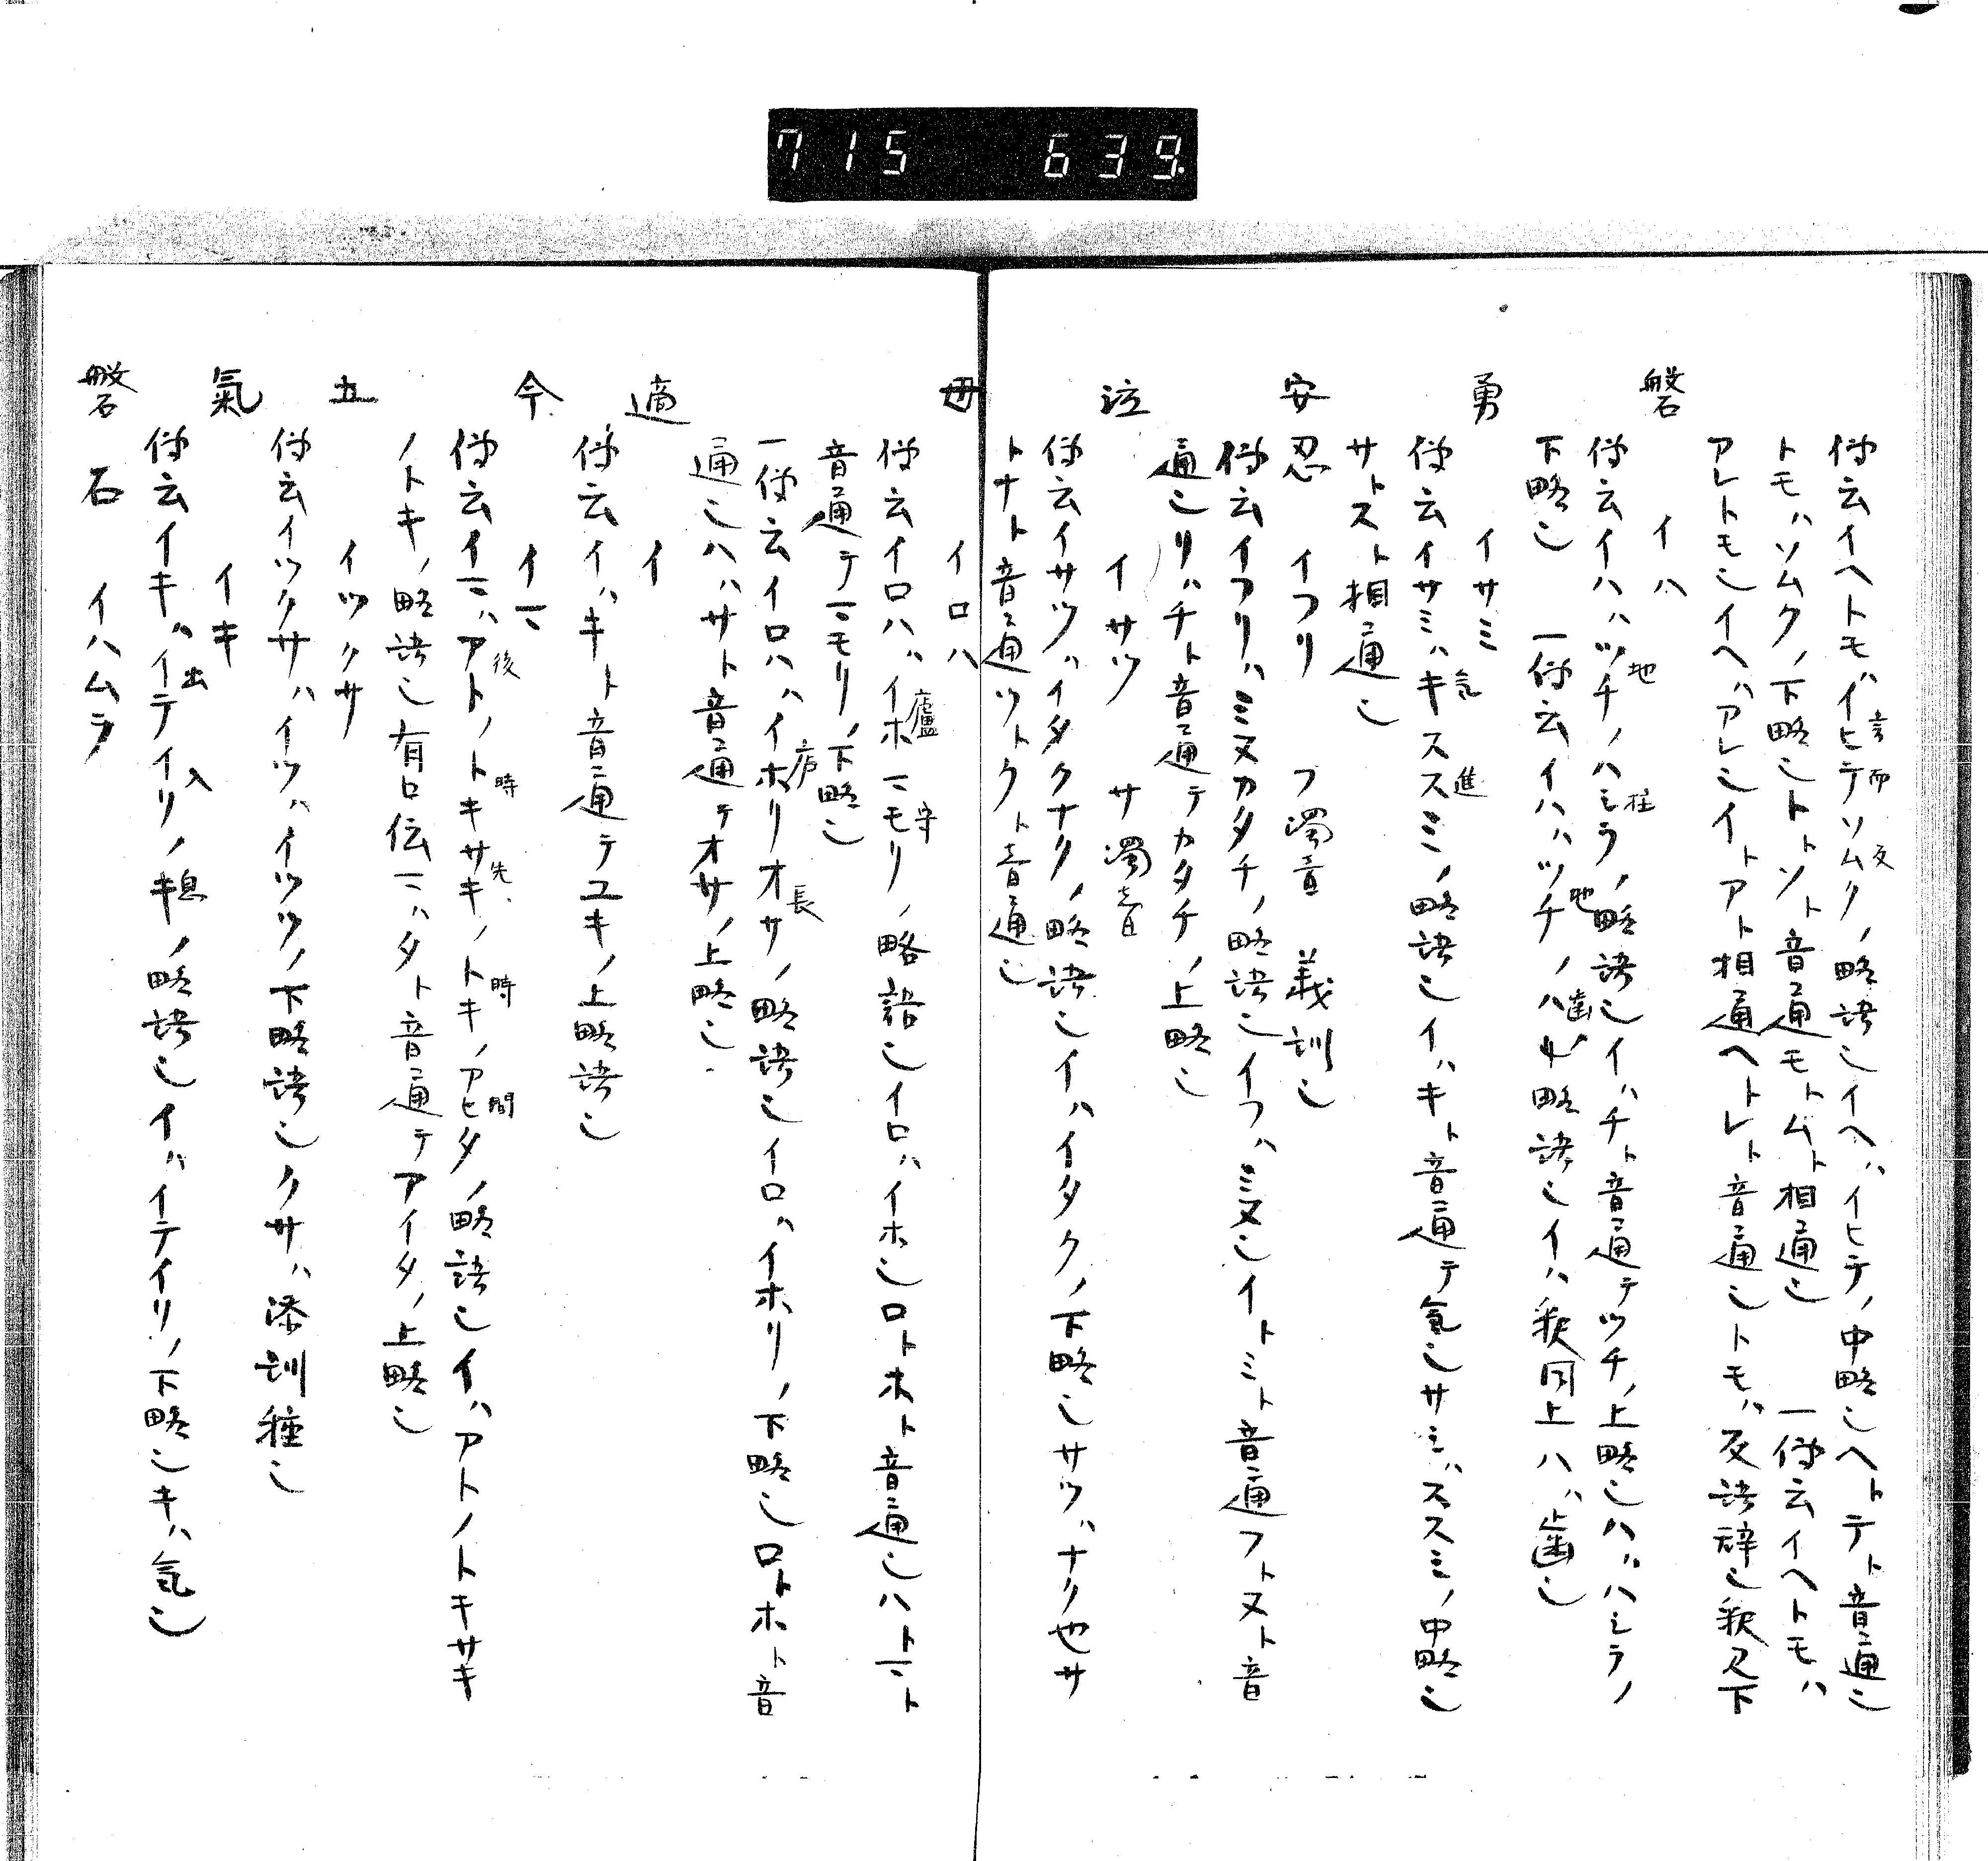 715 639
伊云イヘトモハイヒテソムクノ略語也イヘハイヒテノ中略也ヘトテト音通也
言而 反
トモハソムクノ下略也トトソト音通モトムト相通也 一伊云イヘトモハ
アレトモ也イヘハアレ也イトアト相通ヘトレト音通也トモハ反語辞也釈又下
磐 イハ
伊云イハハツチノハシラノ略語也イハチト音通テツチノ上略也ハハハシラノ
地 柱
下略也 一伊云イハハツチノハノ略語也イハ釈同上ハハ歯也
地 歯
勇 イサミ
伊云イサミハキススミノ略語也イハキト音通テ気也サミハススミノ中略也
気 進
サトスト相通也
安忍 イフリ フ濁音 義訓也
伊云イフリハミヌカタチノ略語也イフハミヌ也イトミト音通フトヌト音
通也リハチト音通テカタチノ上略也
泣 イサツ サ濁音
伊云イサツハイタクナクノ略語也イハイタクノ下略也サツハナク也サ
トナト音通ツトクト音通也
母 イロハ
伊云イロハハイホマモリノ略語也イロハイホ也ロトホト音通也ハトマト
廬 守
音通テマモリノ下略也
一伊云イロハハイホリオサノ略語也イロハイホリノ下略也ロトホト音
庐 長
通也ハハサト音通テオサノ上略也
適 イ
伊云イハキト音通テユキノ上略語也
今 イマ
伊云イマハアトノトキサキノトキノアヒタノ略語也イハアトノトキサキ
後 時 先 時 間
ノトキノ略語也有口伝マハタト音通テアイタノ上略也
五 イツクサ
伊云イツクサハイツハイツツノ下略語也クサハ添訓種也
氣 イキ
伊云イキハイテイリノキノ略語也イハイテイリノ下略也キハ気也
出 入 息
磐石 イハムラ